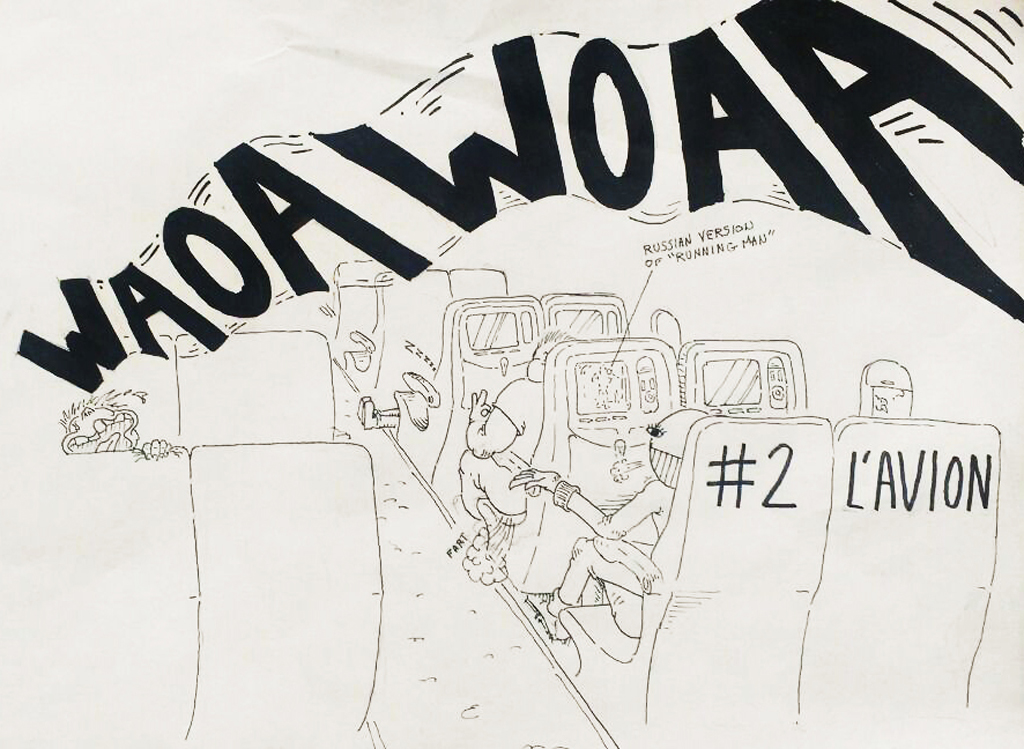 WAOAWOAA
RUSSIAN VERSION
OF "RUNNING MAN"
ZZZZ
#2
L'AVION
FART